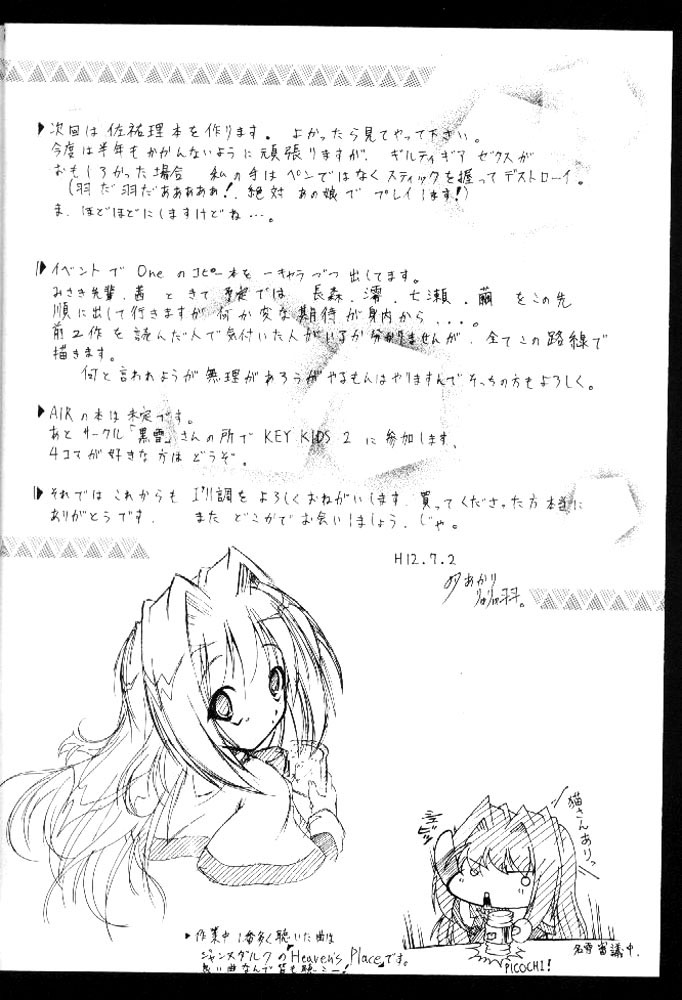 ▶次回は佐祐理本を作ります。よかったら見てやって下さい。
今度は半年もかかんないように頑張りますが、ギルティギア ゼクスが
おもしろかった場合 私の手はペンではなくスティックを握ってデストローイ。
(羽だ羽だあああああ!、絶対あの娘でプレイします!)
ま、ほどほどにしますけどね…。
▶イベントでOneのコピー本を一キャラづつ出してます。
みさき先輩、茜ときて予定では 長森、澪、七瀬、繭をこの先
順に出して行きますが何か変な期待が身内から...。
前2作を読んだ人で気付いた人がいるか分かりませんが、全てこの路線で
描きます。
何と言われようが無理があろうがやるもんはやりますんでそっちの方もよろしく。
▶AIRの本は未定です。
あとサークル「黒雪」さんの所でKEY KIDS 2に参加します、
4コマが好きな方はどうぞ。
▶それではこれからも I'll調をよろしくおねがいします、買ってくださった方本当に
ありがとうです、 またどこかでお会いしましょう、じゃ。
H12.7.2
猫さんありっ
名雪審議中、
PICOCHI!
▶作業中1番多く聴いた曲は
ジャンヌダルクの「Heaven's Place」です。
良い曲なんで皆も聴こー!